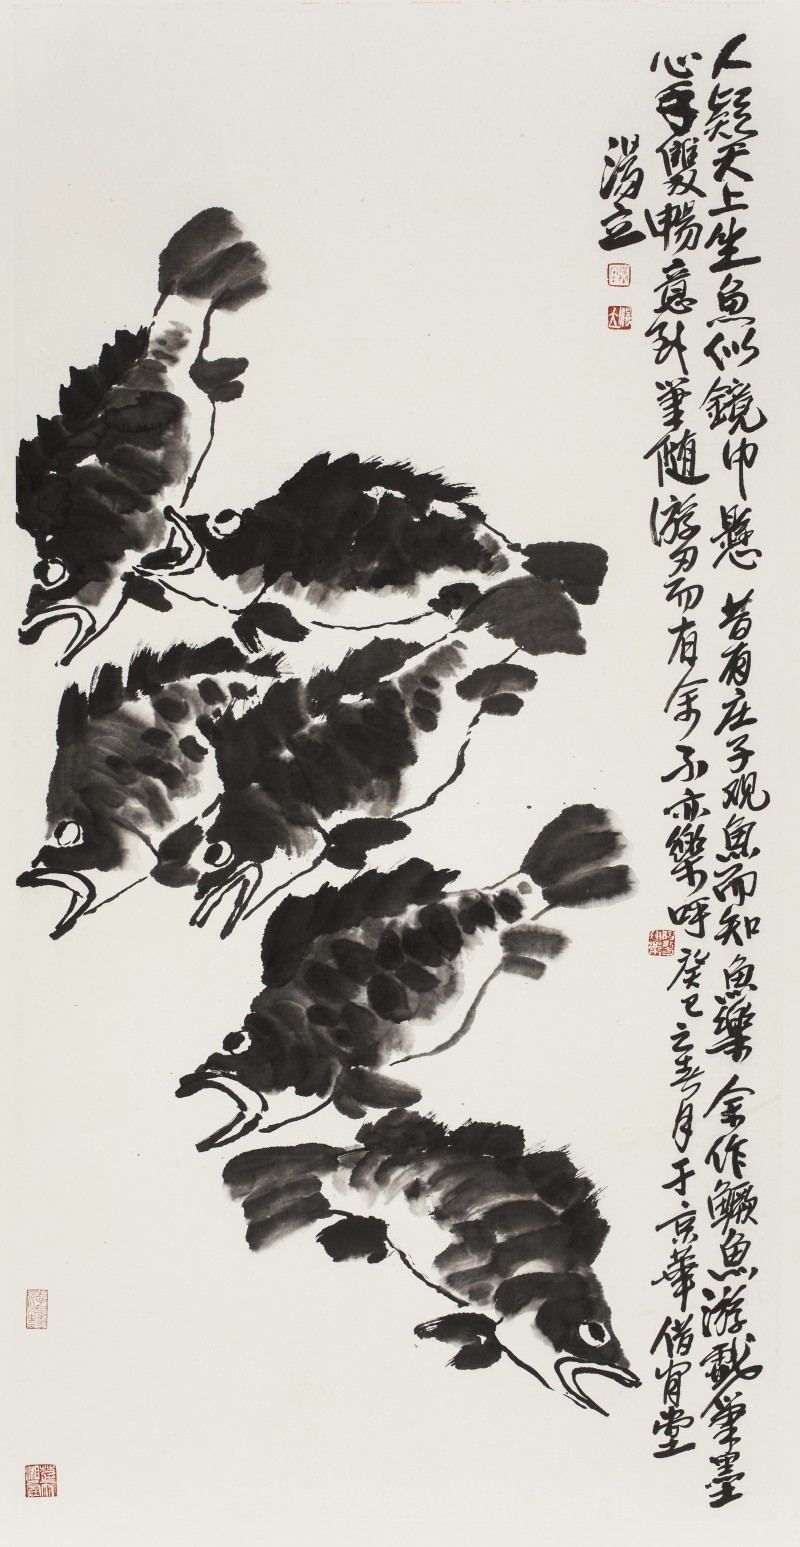 人疑天上坐魚似鏡中懸昔有庄子观魚而知魚樂余作鳜魚游戲筆墨
心手雙暢意到筆随游刃而有余不亦樂呼癸巳之春月于京華借宵堂
湯立